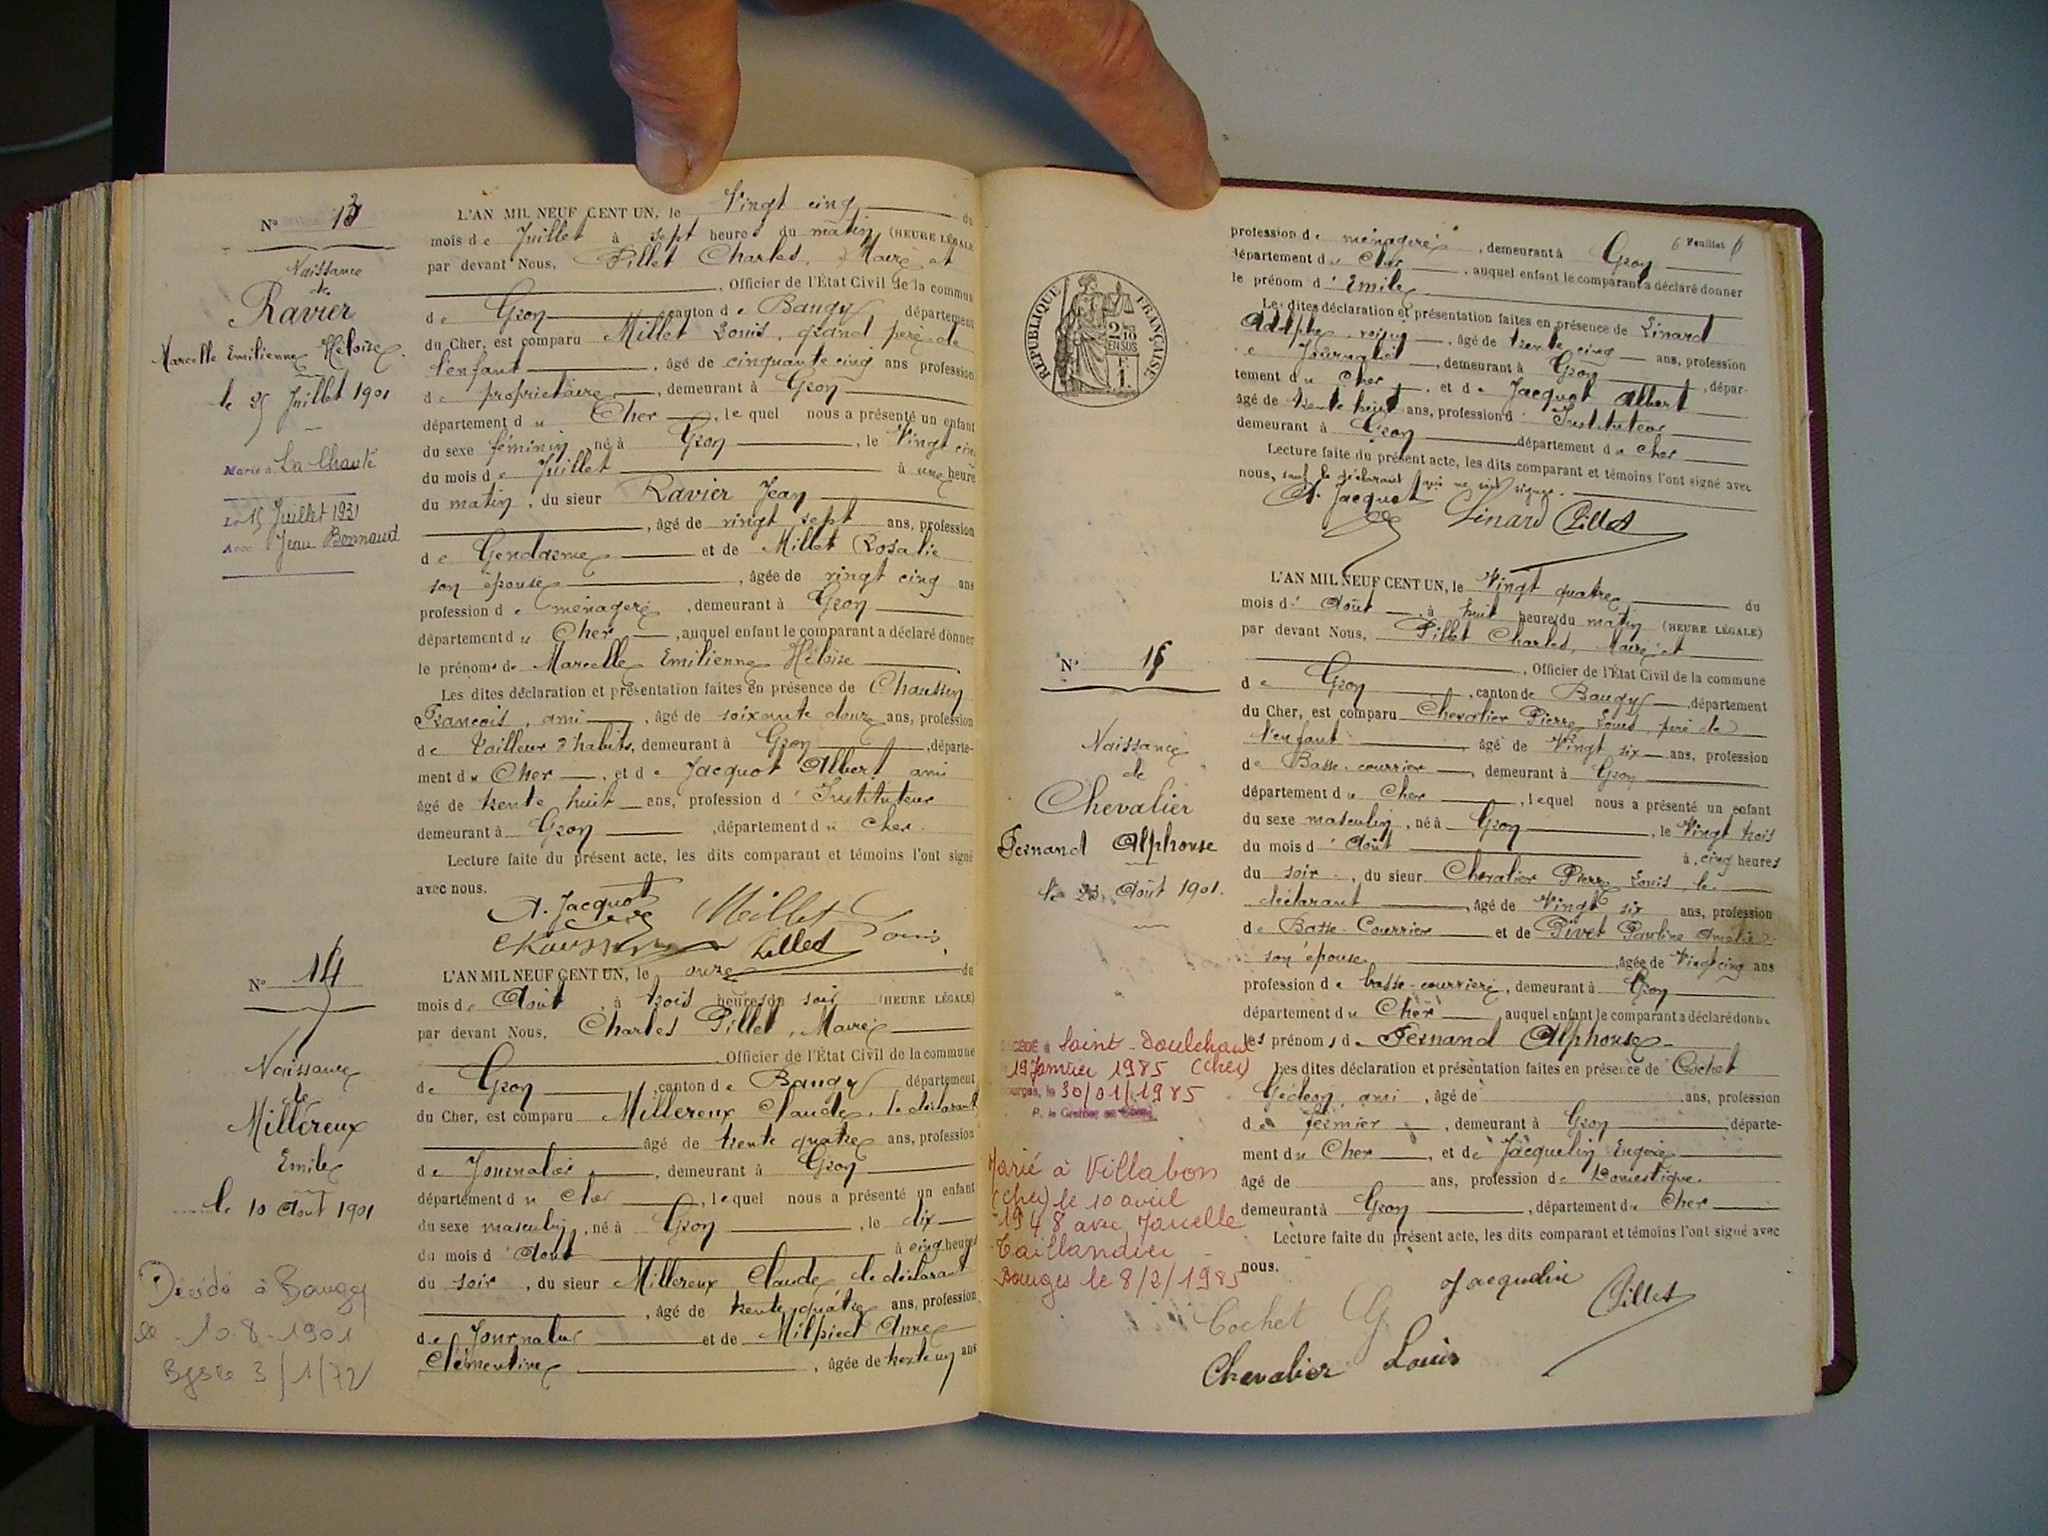 N° 13
Naissance
de
Ravier
Marcelle Emilienne Héloïse
le 25 Juillet 1901
Marié à La Chauté
Le 15 Juillet 1931
Avec Jean Bonnaud
L'AN MIL NEUF CENT UN, le Vingt cinq du
mois de Juillet à sept heures du matin (HEURE LÉGALE
par devant Nous, Pillet Charles, Maire et
, Officier de l'État Civil de la commun
de Gron canton de Baugy département
du Cher, est comparu Millet Louis, grand père de
l'enfant , âgé de cinquante cinq ans profession
de propriétaire , demeurant à Gron
département du Cher , lequel nous a présenté un enfant
du sexe féminin, né à Gron , le Vingt cinq
du mois de Juillet à une heure
du matin , du sieur Ravier Jean
, âgé de vingt sept ans, profession
de Gendarme et de Millet Rosalie
son épouse , âgée de vingt cinq ans
profession de ménagère , demeurant à Gron
département du Cher , auquel enfant le comparant a déclaré donner
le prénoms de Marcelle Emilienne Héloïse
Les dites déclaration et présentation faites en présence de Chaussin
François, ami , âgé de soixante douze ans, profession
de Tailleur d'habits, demeurant à Gron , départe-
ment du Cher , et de Jacquot Albert ami
âgé de trente huit ans, profession d' Instituteur
demeurant à Gron , département du Cher.
Lecture faite du présent acte, les dits comparant et témoins l'ont signé
avec nous.
A. Jacquot Millet Louis
Pillet
N° 14
Naissance
de
Millereux
Emile
le 10 Août 1901
Décédé à Baugy
le 10.8.1901
Bgs le 3/1/72
L'AN MIL NEUF CENT UN, le onze du
mois de Août à trois heures du soir (HEURE LÉGALE)
par devant Nous, Charles Pillet, Maire
Officier de l'État Civil de la commune
de Gron canton de Baugy département
du Cher, est comparu Millereux Claude, le déclarant
âgé de trente quatre ans, profession
de Journalier , demeurant à Gron
département du Cher , lequel nous a présenté un enfant
du sexe masculin, né à Gron , le dix
du mois d' Août à cinq heures
du soir , du sieur Millereux Claude le déclarant
, âgé de trente quatre ans, profession
de Journalier et de Milpied Anne
Clémentine , âgée de trente un ans
6 Feuillet 6
profession de ménagère , demeurant à Gron
département du Cher , auquel enfant le comparant a déclaré donner
le prénom d' Emile
Les dites déclaration et présentation faites en présence de Linard
Adolphe, voisin , âgé de trente cinq ans, profession
de Journalier , demeurant à Gron , dépar-
tement du Cher , et de Jacquot Albert
âgé de trente huit ans, profession d' Instituteur
demeurant à Gron département du Cher
Lecture faite du présent acte, les dits comparant et témoins l'ont signé avec
nous, sauf le déclarant qui ne sait signer.
A. Jacquot Linard Pillet
RÉPUBLIQUE FRANÇAISE
N° 15
Naissance
de
Chevalier
Fernand Alphonse
le 23 Août 1901.
DÉCÉDÉ à Saint-Doulchard
19 Janvier 1985 (Cher)
Bourges, le 30/01/1985
P. le Greffier en
Marié à Villabon
(Cher) le 10 avril
1948 avec Marcelle
Taillandier
Bourges le 8/2/1985
L'AN MIL NEUF CENT UN, le Vingt quatre du
mois d' Août , à huit heures du matin (HEURE LÉGALE)
par devant Nous, Pillet Charles, Maire et
, Officier de l'État Civil de la commune
de Gron , canton de Baugy , département
du Cher, est comparu Chevalier Pierre Louis, père de
l'enfant âgé de Vingt six ans, profession
de Basse-courrier , demeurant à Gron
département du Cher , lequel nous a présenté un enfant
du sexe masculin, né à Gron , le Vingt trois
du mois d' Août à cinq heures
du soir , du sieur Chevalier Pierre Louis, le
déclarant , âgé de Vingt six ans, profession
de Basse-Courrier et de Pivet Pauline Amélie
son épouse , âgée de Vingt cinq ans
profession de basse-courrière, demeurant à Gron
département du Cher auquel enfant le comparant a déclaré donne
les prénoms de Fernand Alphonse
Les dites déclaration et présentation faites en présence de Cochet
Gédéon, ami , âgé de ans, profession
de fermier , demeurant à Gron départe-
ment du Cher , et de Jacquelin Eugène
âgé de ans, profession de Domestique.
demeurant à Gron , département du Cher
Lecture faite du présent acte, les dits comparant et témoins l'ont signé avec
nous.
Jacquelin
Cochet G. Pillet
Chevalier Louis